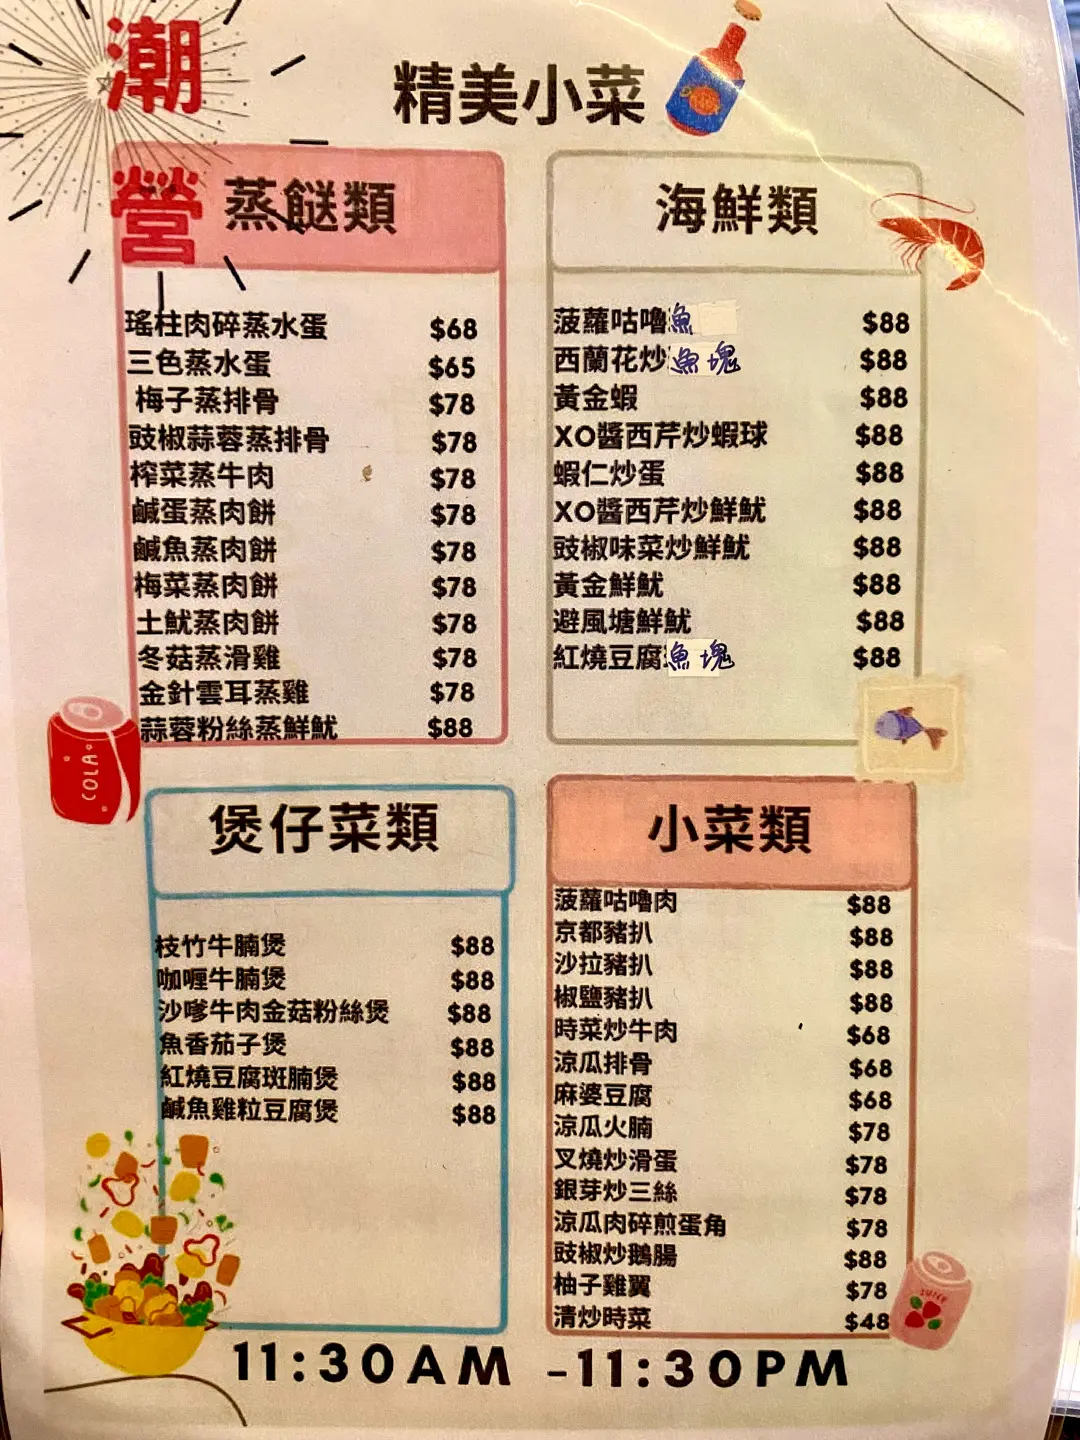 潮營
精美小菜
蒸餸類
瑤柱肉碎蒸水蛋 $68
三色蒸水蛋 $65
梅子蒸排骨 $78
豉椒蒜蓉蒸排骨 $78
榨菜蒸牛肉 $78
鹹蛋蒸肉餅 $78
鹹魚蒸肉餅 $78
梅菜蒸肉餅 $78
土魷蒸肉餅 $78
冬菇蒸滑雞 $78
金針雲耳蒸雞 $78
蒜蓉粉絲蒸鮮魷 $88
海鮮類
菠蘿咕嚕魚 $88
西蘭花炒魚塊 $88
黃金蝦 $88
XO醬西芹炒蝦球 $88
蝦仁炒蛋 $88
XO醬西芹炒鮮魷 $88
豉椒味菜炒鮮魷 $88
黃金鮮魷 $88
避風塘鮮魷 $88
紅燒豆腐魚塊 $88
COLA
煲仔菜類
枝竹牛腩煲 $88
咖喱牛腩煲 $88
沙嗲牛肉金菇粉絲煲 $88
魚香茄子煲 $88
紅燒豆腐斑腩煲 $88
鹹魚雞粒豆腐煲 $88
小菜類
菠蘿咕嚕肉 $88
京都豬扒 $88
沙拉豬扒 $88
椒鹽豬扒 $88
時菜炒牛肉 $68
涼瓜排骨 $68
麻婆豆腐 $68
涼瓜火腩 $78
叉燒炒滑蛋 $78
銀芽炒三絲 $78
涼瓜肉碎煎蛋角 $78
豉椒炒鵝腸 $88
柚子雞翼 $78
清炒時菜 $48
JUICE
11:30AM -11:30PM